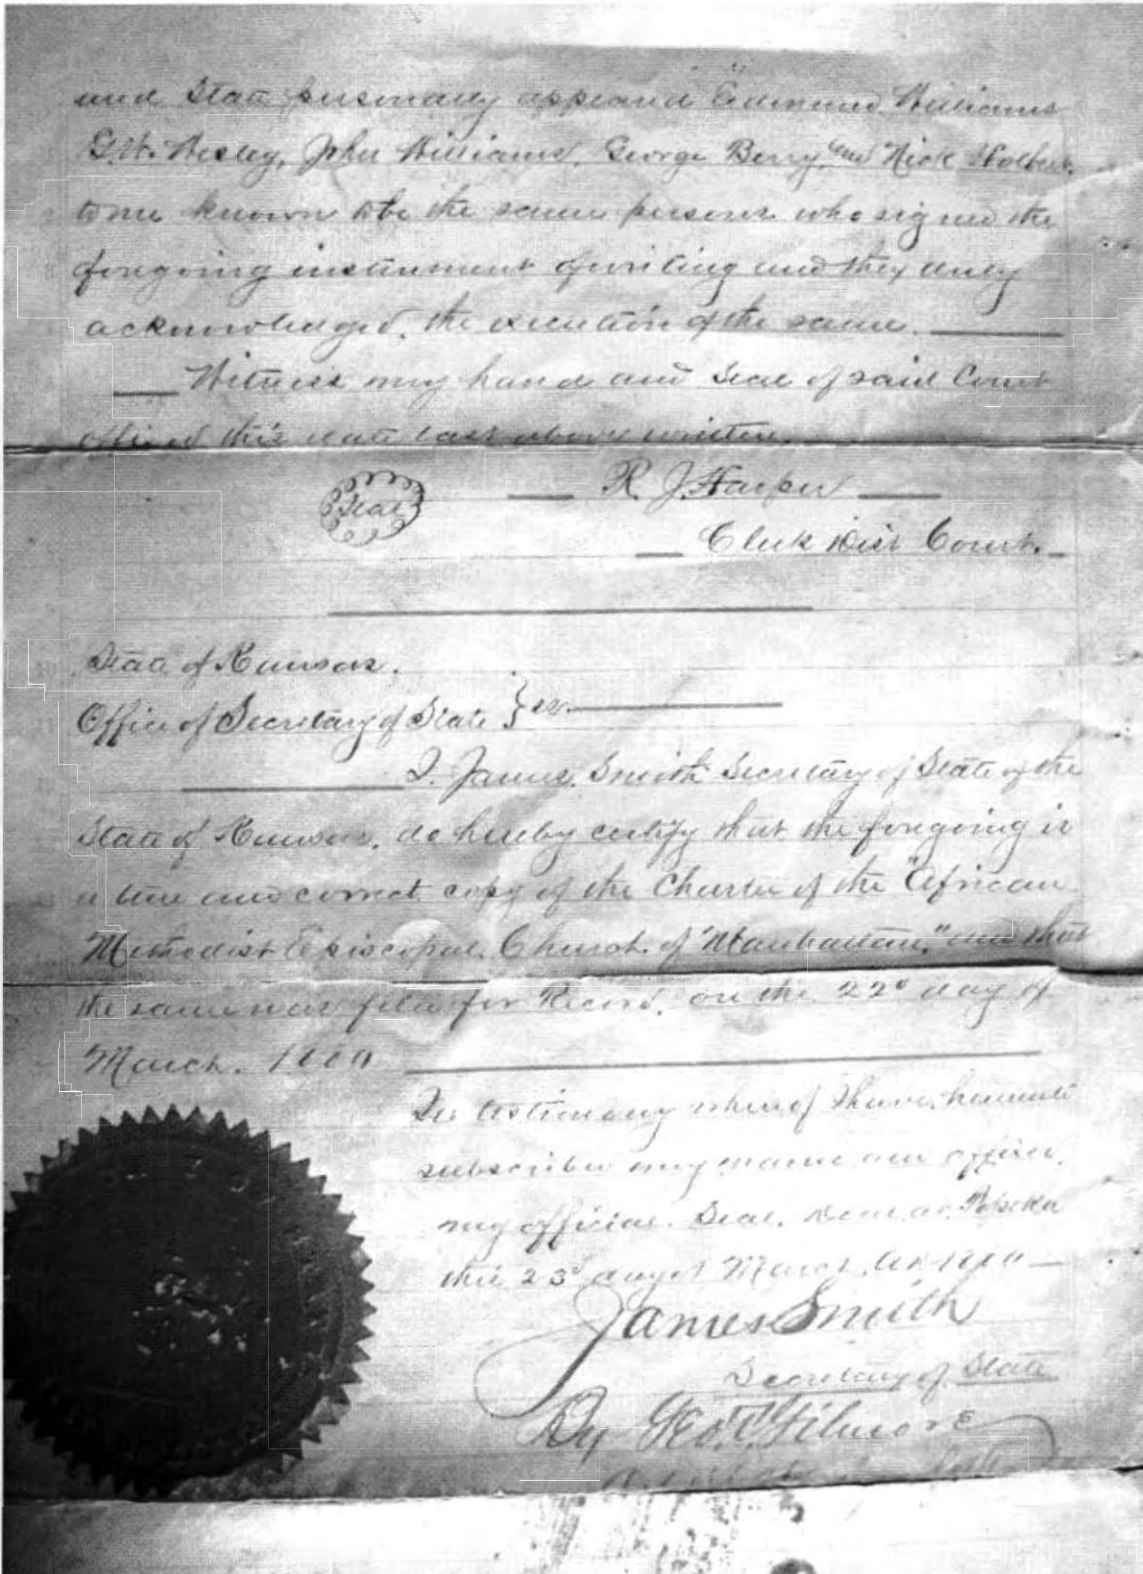 and State personally appeared Edmund Williams
G.W. Wesley, John Williams, George Berry, and Nick
to me known to be the same persons who signed the
foregoing instrument of writing and they duly
acknowledged, the execution of the same.
Witness my hand and Seal of said Court
affixed this date last above written.
Seal R. J. Harper
Clerk Dist Court.
State of Kansas.
Office of Secretary of State } ss.
I, James Smith Secretary of State of the
State of Kansas, do hereby certify that the foregoing is
a true and correct copy of the Charter of the "African
Methodist Episcopal Church of Manhattan," and that
the same was filed for Record, on the 22d day of
March.
In testimony whereof I have hereunto
subscribed my name and affixed
my official Seal. Done at Topeka
this 23d day of March AD
James Smith
Secretary of State
By Geo. T. Gilmore